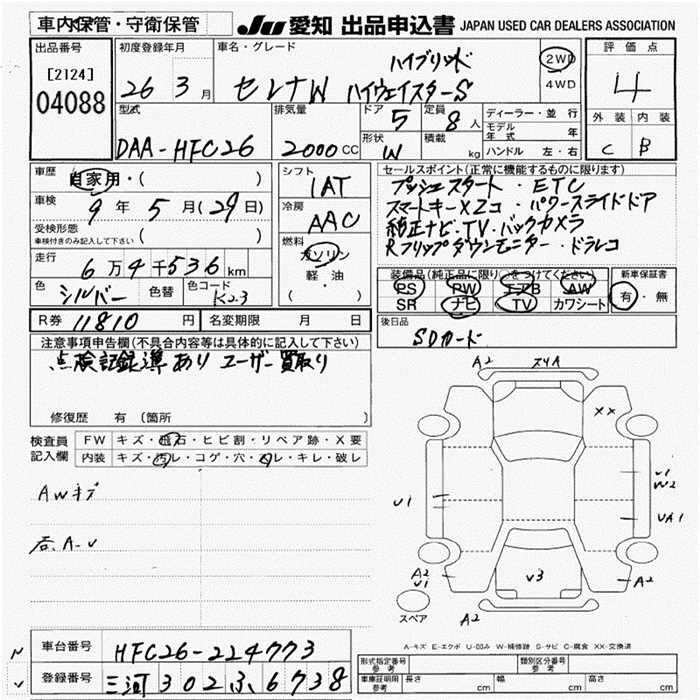 車内保管・守衛保管
JU 愛知 出品申込書 JAPAN USED CAR DEALERS ASSOCIATION
出品番号
[2124]
04088
初度登録年月
26 3月
車名・グレード
ハイブリッド
セレナW ハイウェイスターS
2WD
4WD
評価点
4
外装 内装
C B
型式
DAA-HFC26
排気量
2000CC
ドア 5
定員 8人
形状 W
積載 kg
ディーラー・並行
モデル年式 年
ハンドル 左・右
車歴 自家用・( )
車検 9年 5月(29日)
受検形態
車検付きのみ記入して下さい ( )
走行 6万4千536km
色 シルバー 色替 色コード K23
シフト
IAT
冷房
AAC
燃料
ガソリン
軽・油
( ・ )
セールスポイント(正常に機能するものに限ります)
プッシュスタート・ETC
スマートキーX2コ・パワースライドドア
純正ナビ・TV・バックカメラ
Rフリップダウンモニター・ドラレコ
装備品(純正品に限り○をつけてください)
PS PW エアB AW
SR ナビ TV カワシート
新車保証書
有・無
R券 11810円 名変期限 月 日
後日品
SDカード
注意事項申告欄(不具合内容等は具体的に記入して下さい)
点検記録簿あり ユーザー買取り
修復歴 有(箇所 )
検査員記入欄
FW キズ・飛石・ヒビ割・リペア跡・X要
内装 キズ・汚レ・コゲ・穴・スレ・キレ・破レ
AWキズ
A2 XYA
XX
U1
W2
U1
UA1
A2
U1
U3
A2
A2
スペア
A-キズ E-エクボ U-凹み W-補修跡 S-サビ C-腐食 XX-交換済
車台番号 HFC26-224773
登録番号 三河 302 ふ 6738
形式指定番号 参考
類別区分番号 参考
車庫証明用 参考 長さ cm 幅 cm 高さ cm